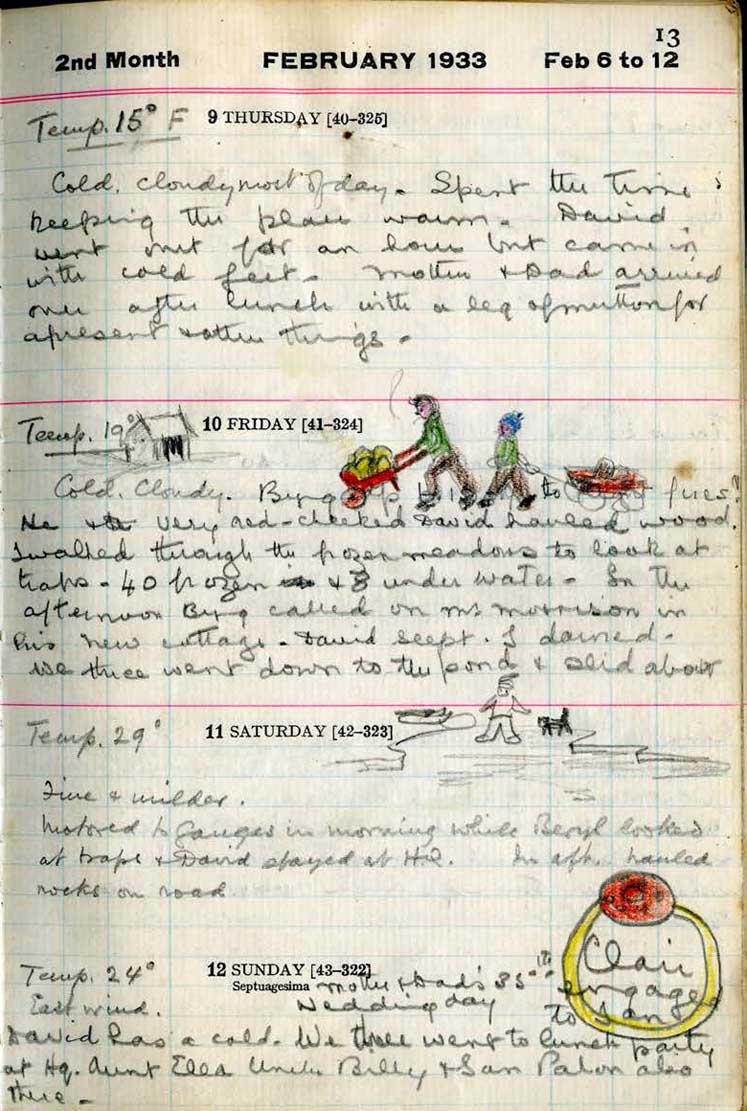 13
2nd Month FEBRUARY 1933 Feb 6 to 12
Temp. 15° F 9 THURSDAY [40-325]
Cold, cloudy most of day. Spent the time
keeping the place warm. David
went out for an hour but came in
with cold feet. Mother & Dad arrived
over after lunch with a leg of mutton for
a present & other things.
Temp. 19° 10 FRIDAY [41-324]
Cold. Cloudy. Byrg up to fires!
He & very red-cheeked David hauled wood.
I walked through the frozen meadows to look at
traps - 40 frozen & 8 under water - In the
afternoon Byrg called on Mr Morrison in
his new cottage. David slept. I darned.
We three went down to the pond & slid about
Temp. 29° 11 SATURDAY [42-323]
Fine & milder.
Motored to Ganges in morning while Beryl looked
at traps & David stayed at H.Q. In aft. hauled
rocks on road
Temp. 24° 12 SUNDAY [43-322]
Septuagesima Mother & Dad's 35th
Wedding day
East wind.
Clair
engaged
to
David has a cold. We three went to lunch party
at Hq. Aunt Ella Uncle Billy & San Paton also
there -